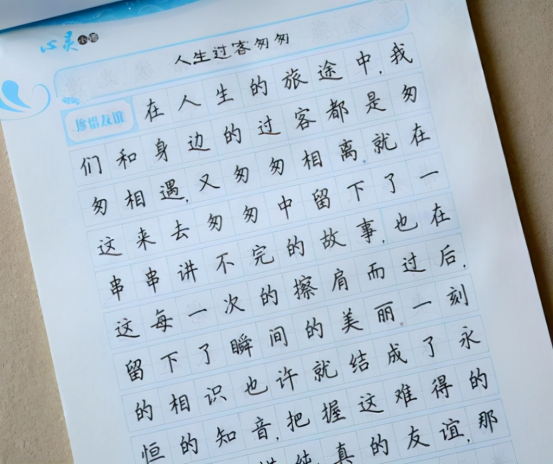 心灵
人生过客匆匆
珍惜友谊
在人生的旅途中,我
们和身边的过客都是匆
匆相遇,又匆匆相离,就在
这来去匆匆中留下了一
串串讲不完的故事,也在
这每一次的擦肩而过后,
留下了瞬间的美丽。一刻
的相识也许就结成了永
恒的知音,把握这难得的
纯真的友谊,那